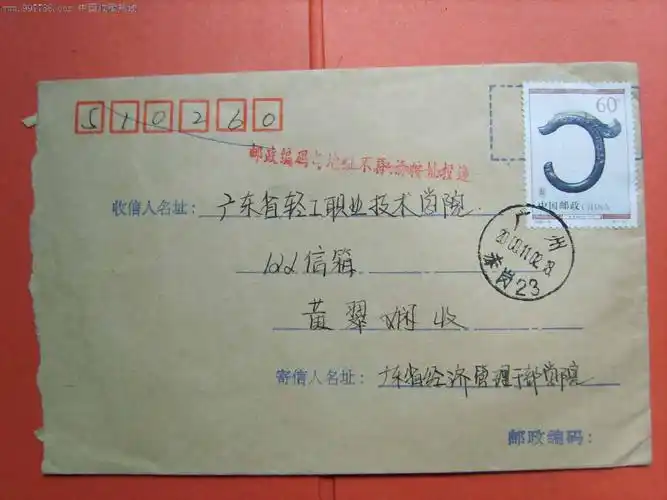 www.997788.com 中国收藏热线
510260
60分
中国邮政 CHINA
邮政编码与地址不符 按址投递
收信人名址：广东省轻工职业技术学院
信箱
广州
2000.11.02.18
赤岗23
黄翠娴收
寄信人名址：广东省经济管理干部学院
邮政编码：